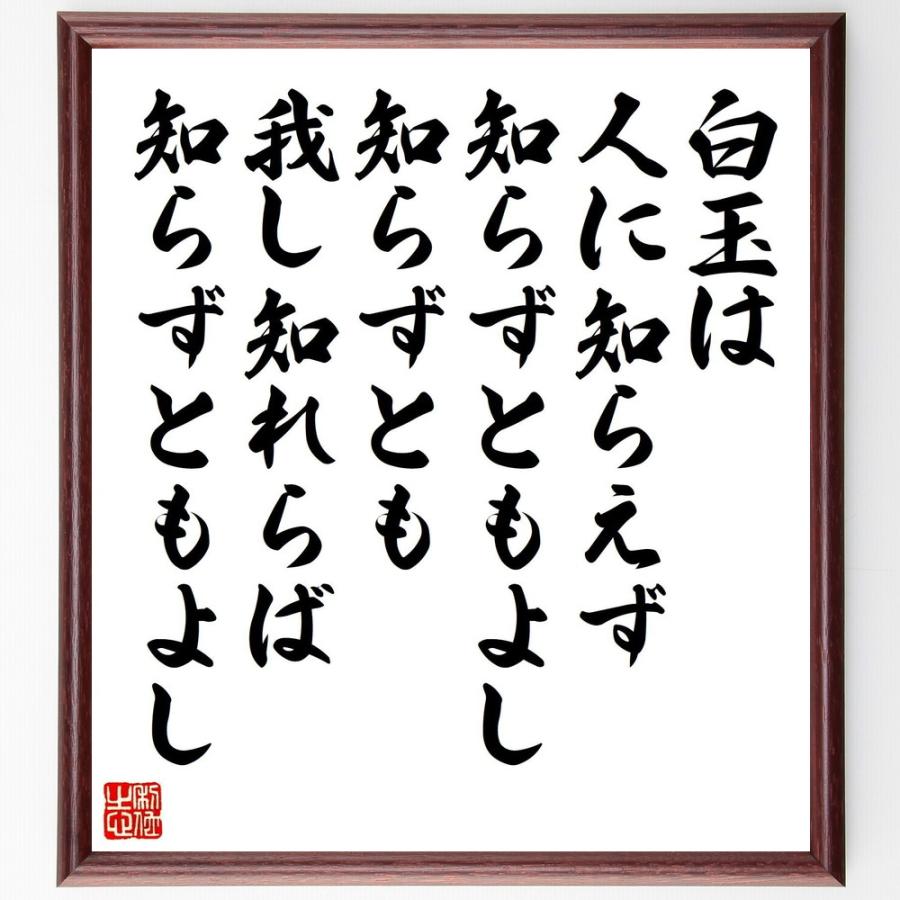 白玉は
人に知らえず
知らずともよし
知らずとも
我し知れらば
知らずともよし